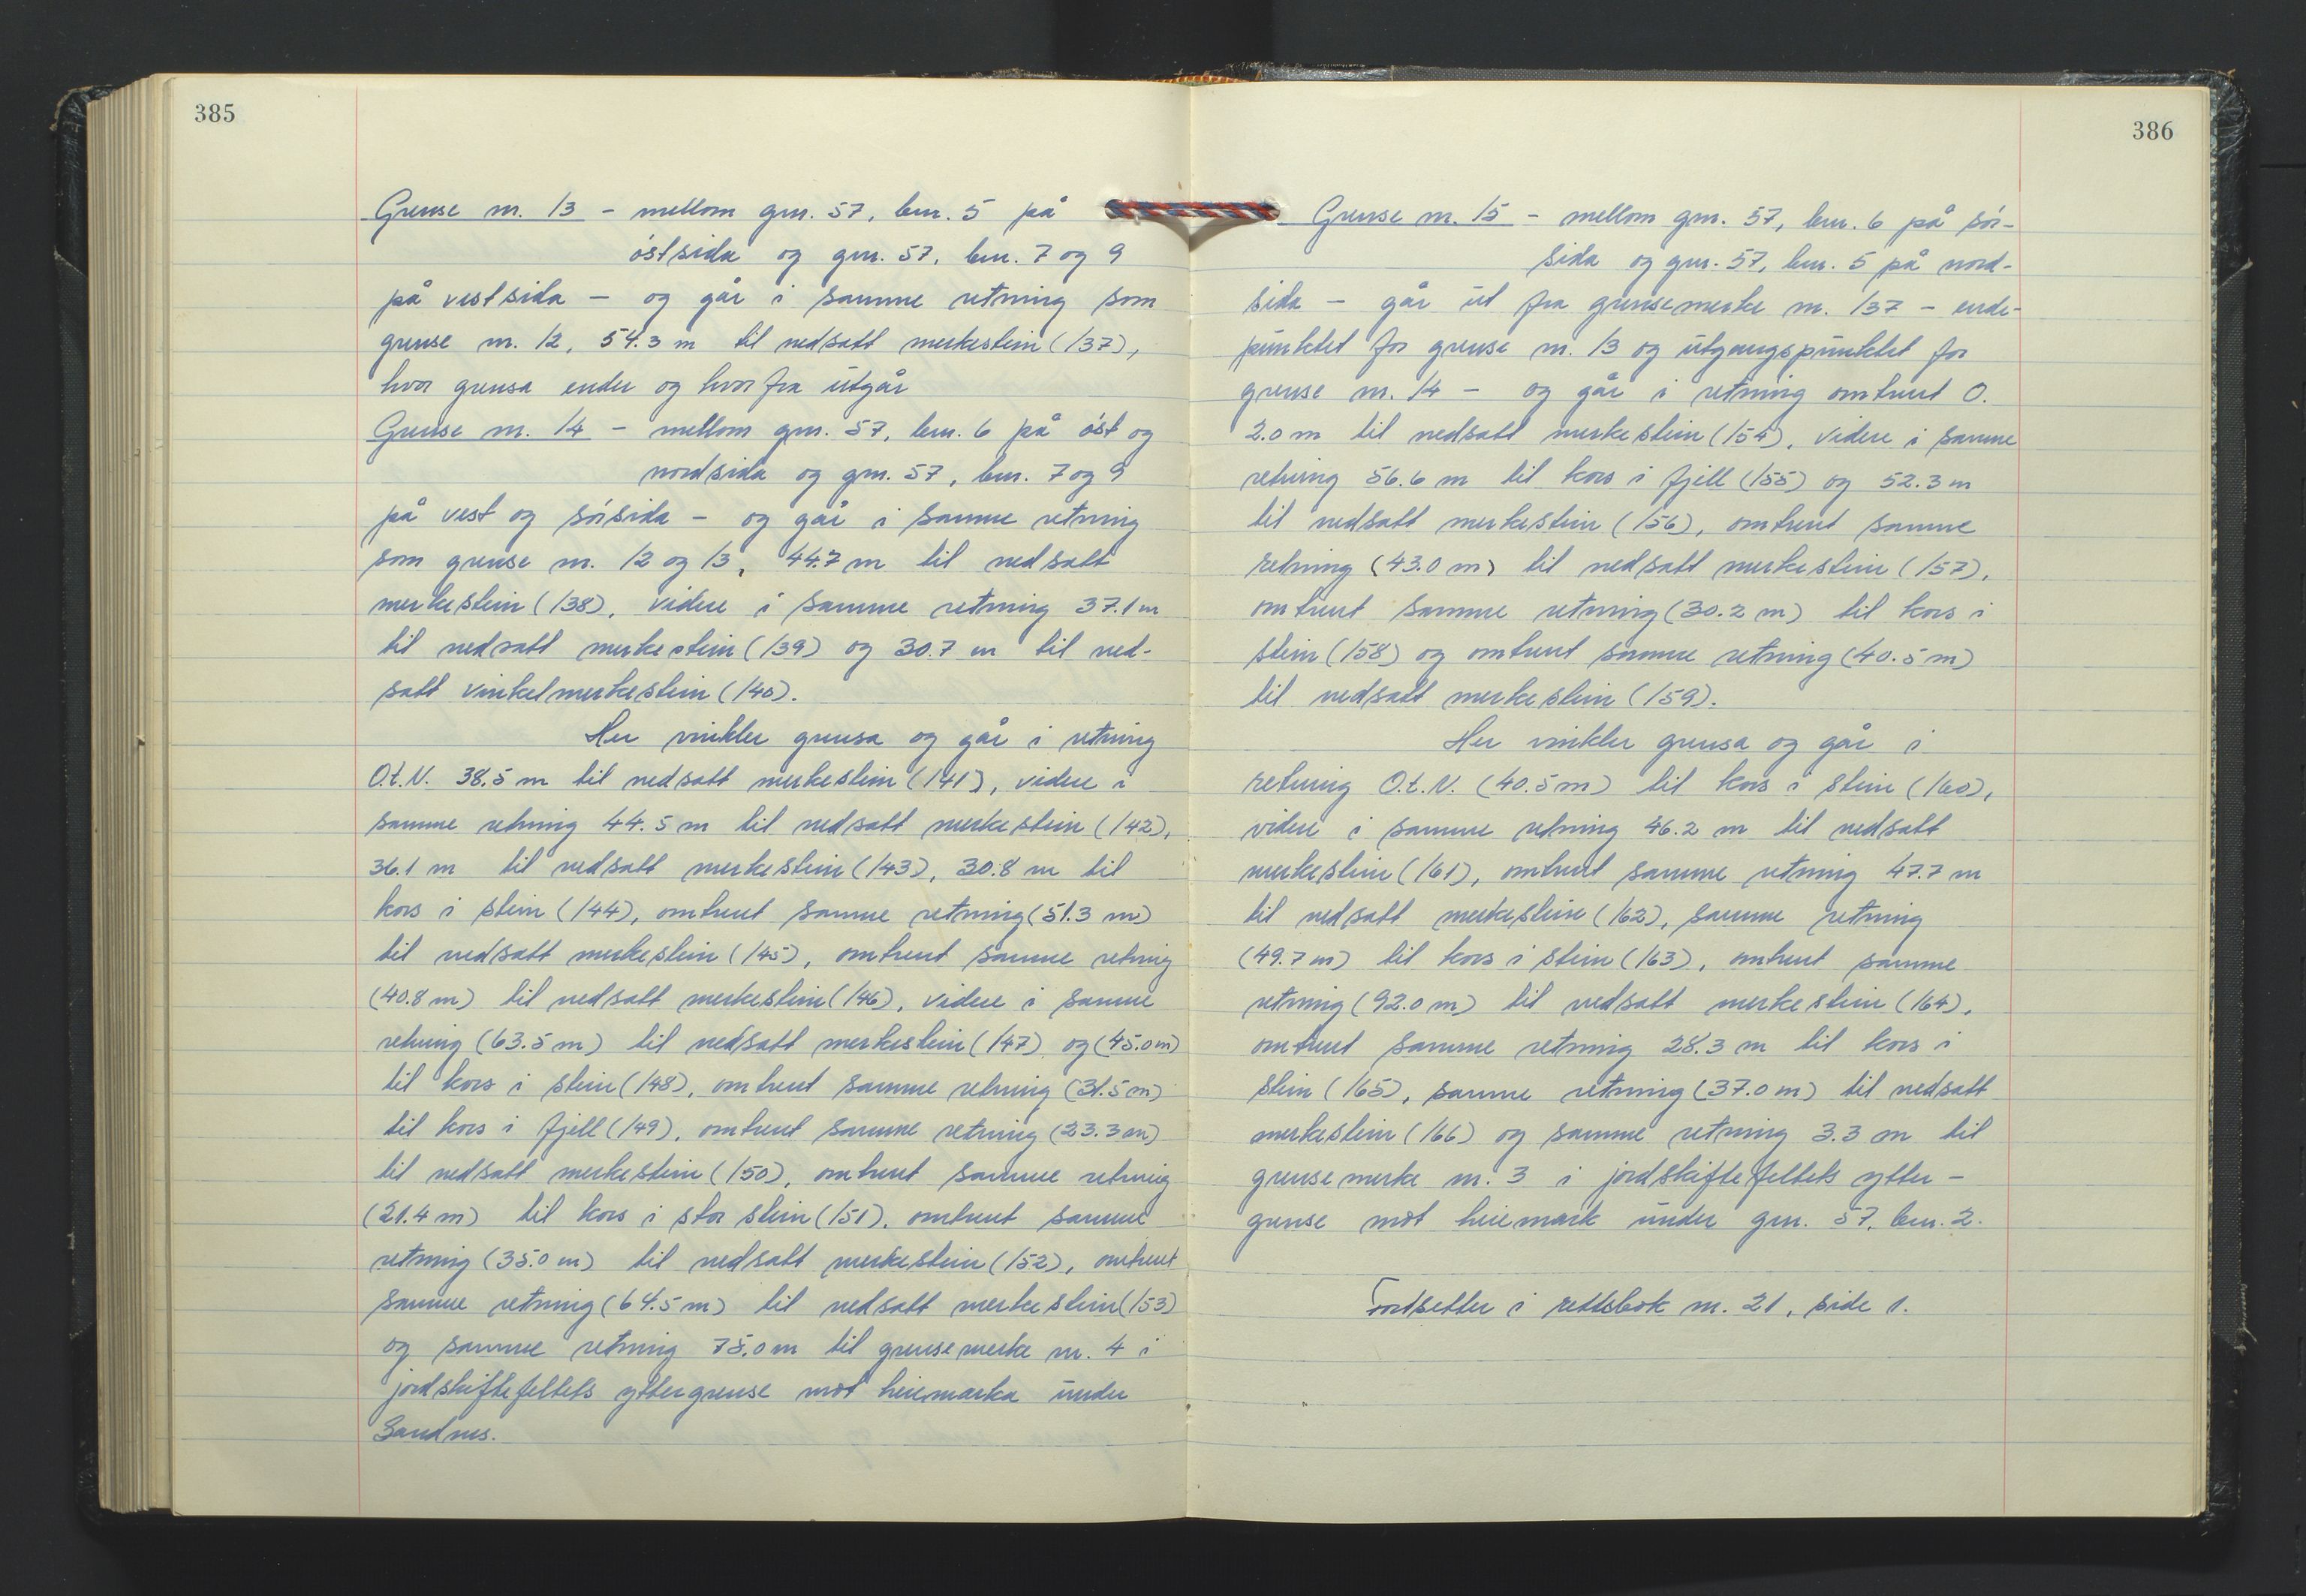 385
Grense nr. 13 - mellom gnr. 57, bnr. 5 på
østsida og gnr. 57, bnr. 7 og 9
på vestsida - og går i samme retning som
grense nr. 12, 54.3 m til nedsatt merkestein (137),
hvor grensa ender og hvor fra utgår
Grense nr. 14 - mellom gnr. 57, bnr. 6 på øst og
nordsida og gnr. 57, bnr. 7 og 9
på vest og sørsida - og går i samme retning
som grense nr. 12 og 13, 44.7 m til nedsatt
merkestein (138), videre i samme retning 37.1 m
til nedsatt merkestein (139) og 30.7 m til ned-
satt vinkelmerkestein (140).
Her vinkler grensa og går i retning
O.t.N. 38.5 m til nedsatt merkestein (141), videre i
samme retning 44.5 m til nedsatt merkestein (142),
36.1 m til nedsatt merkestein (143), 30.8 m til
kors i stein (144), omtrent samme retning (51.3 m)
til nedsatt merkestein (145), omtrent samme retning
(40.8 m) til nedsatt merkestein (146), videre i samme
retning (63.5 m) til nedsatt merkestein (147) og (45.0 m)
til kors i stein (148), omtrent samme retning (31.5 m)
til kors i fjell (149), omtrent samme retning (23.3 m)
til nedsatt merkestein (150), omtrent samme retning
(21.4 m) til kors i stor stein (151), omtrent samme
retning (35.0 m) til nedsatt merkestein (152), omtrent
samme retning (64.5 m) til nedsatt merkestein (153)
og samme retning 75.0 m til grensemerke nr. 4 i
jordskiftefeltets yttergrense mot heiemarka under
Sandnes.
386
Grense nr. 15 - mellom gnr. 57, bnr. 6 på sør-
sida og gnr. 57, bnr. 5 på nord-
sida - går ut fra grensemerke nr. 137 - ende-
punktet for grense nr. 13 og utgangspunktet for
grense nr. 14 - og går i retning omtrent O.
2.0 m til nedsatt merkestein (154), videre i samme
retning 56.6 m til kors i fjell (155) og 52.3 m
til nedsatt merkestein (156), omtrent samme
retning (43.0 m) til nedsatt merkestein (157),
omtrent samme retning (30.2 m) til kors i
stein (158) og omtrent samme retning (40.5 m)
til nedsatt merkestein (159).
Her vinkler grensa og går i
retning O.t.N. (40.5 m) til kors i stein (160),
videre i samme retning 46.2 m til nedsatt
merkestein (161), omtrent samme retning 47.7 m
til nedsatt merkestein (162), samme retning
(49.7 m) til kors i stein (163), omtrent samme
retning (92.0 m) til nedsatt merkestein (164),
omtrent samme retning 28.3 m til kors i
stein (165), samme retning (37.0 m) til nedsatt
merkestein (166) og samme retning 3.3 m til
grensemerke nr. 3 i jordskiftefeltets ytter-
grense mot heiemark under gnr. 57, bnr. 2.
Fortsetter i rettsbok nr. 21, side 1.